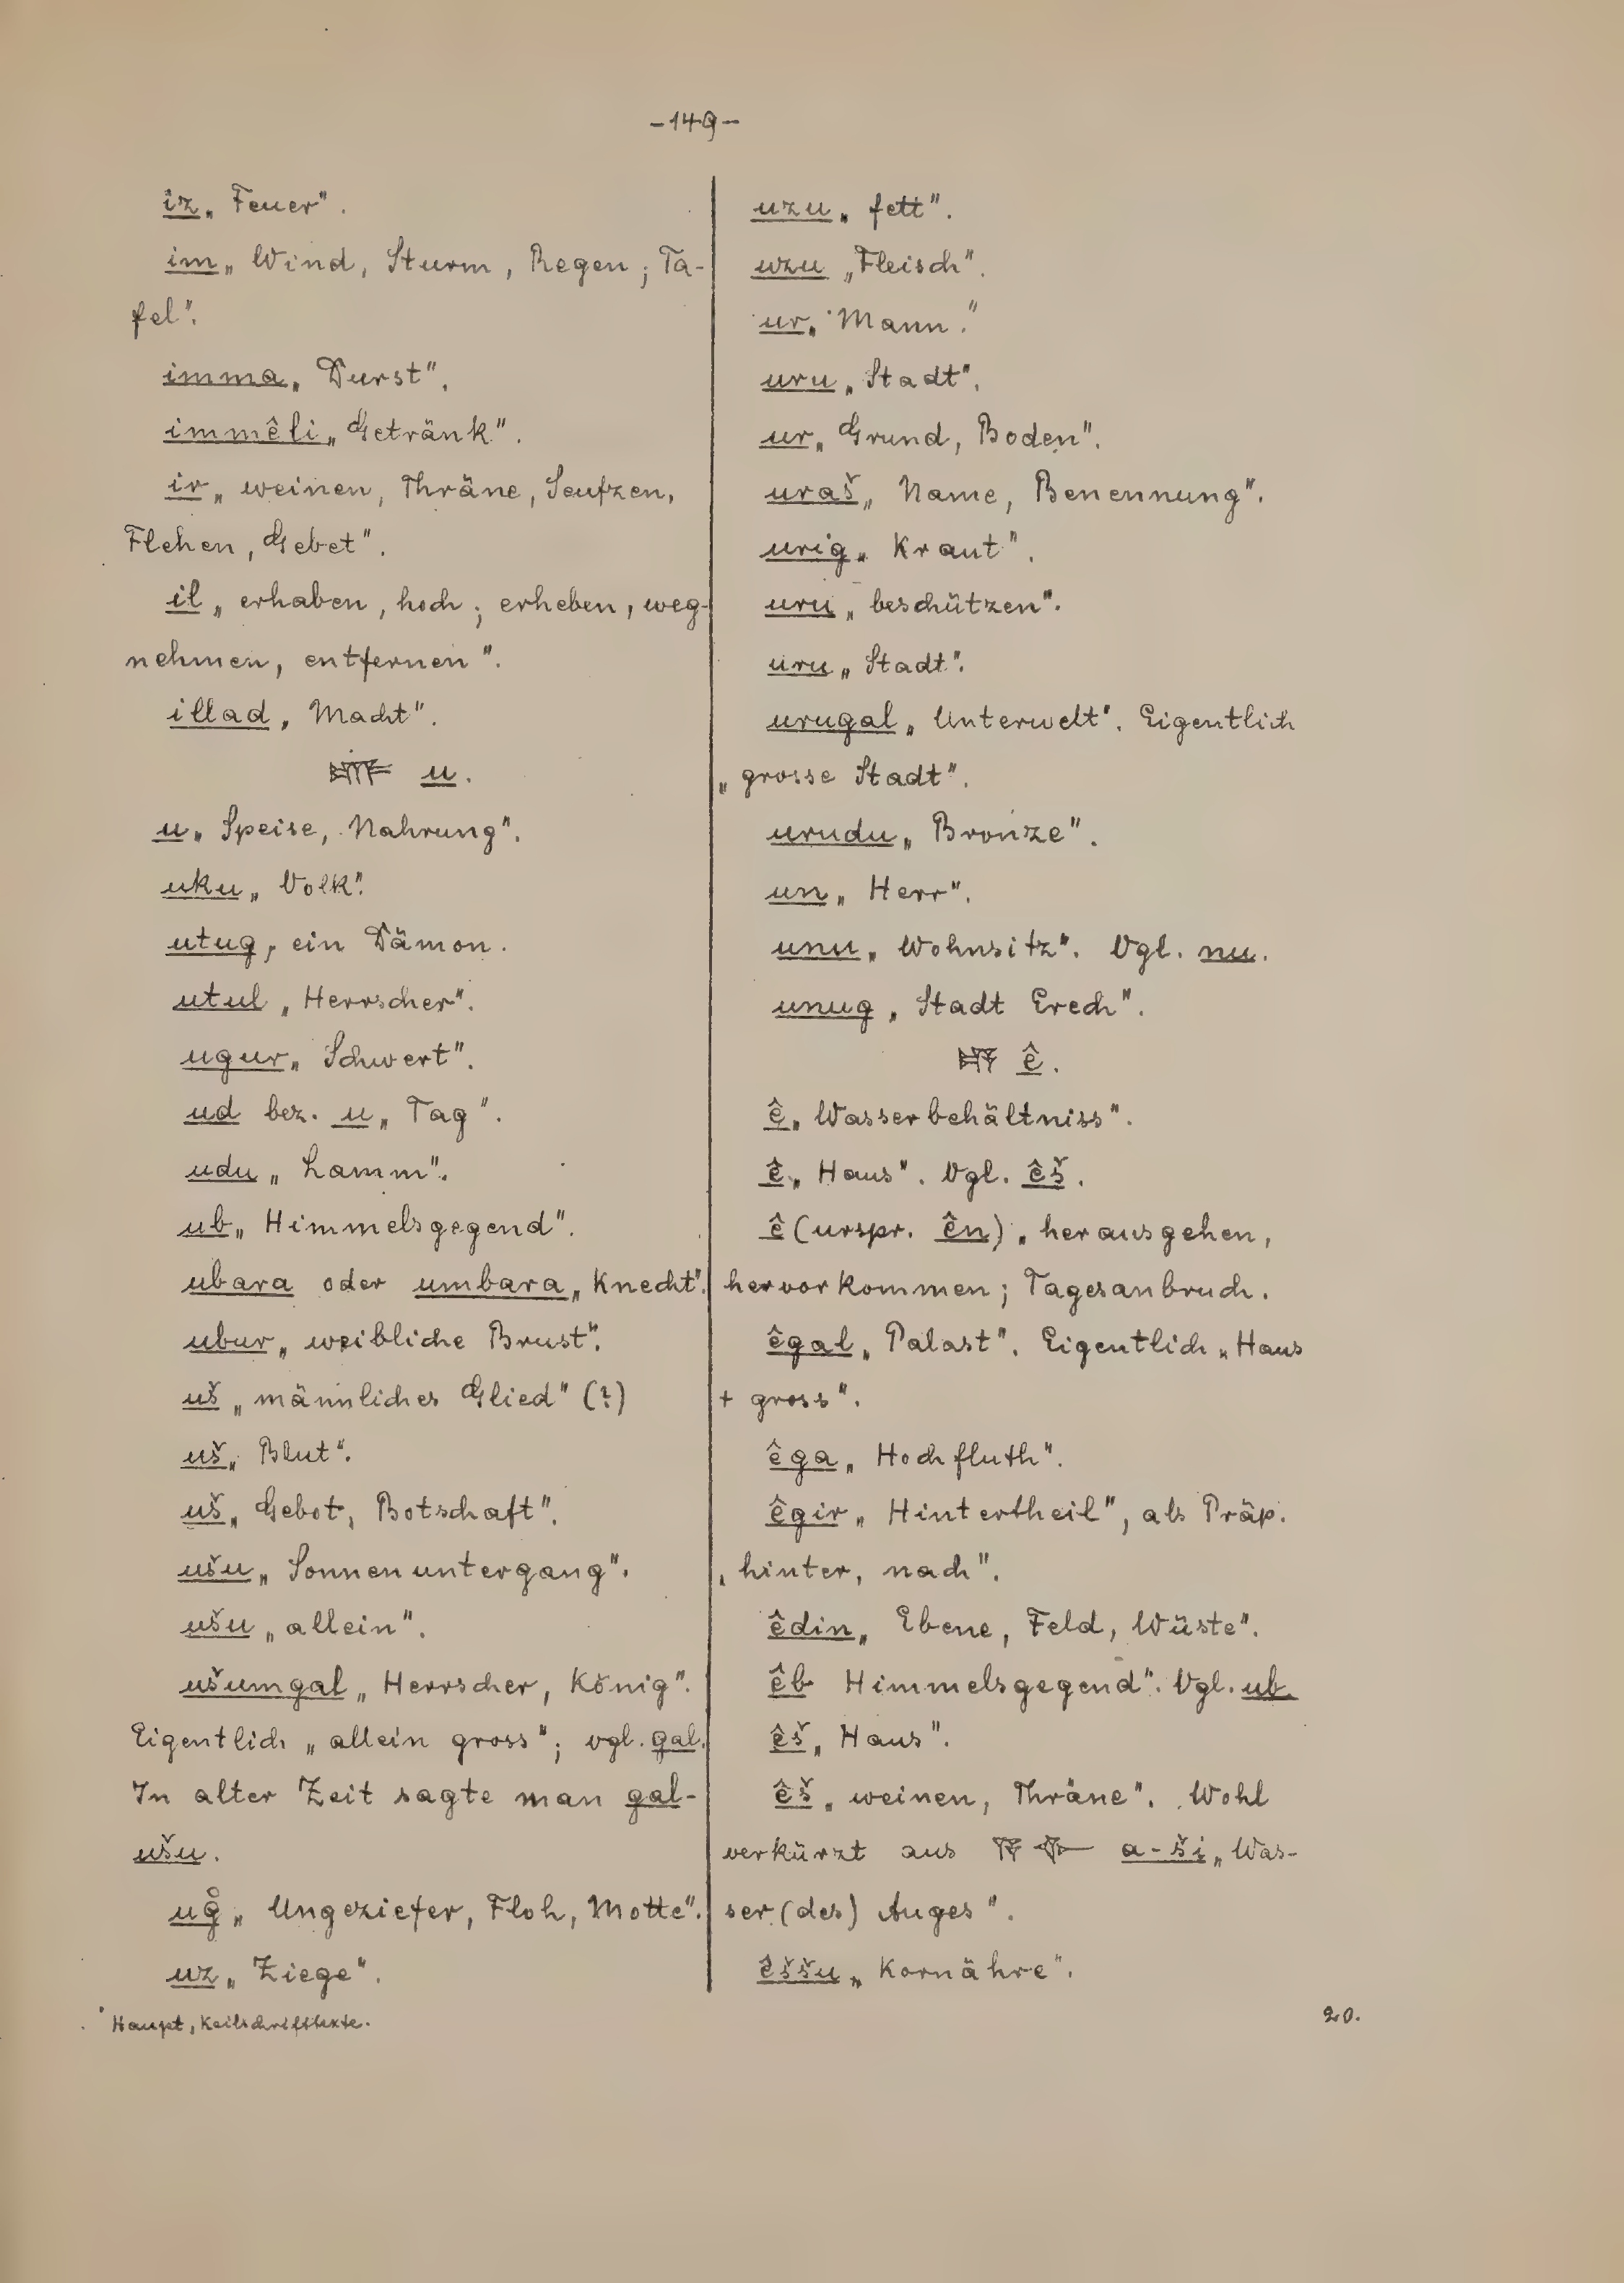 -149-
iz „Feuer".
im „Wind, Sturm, Regen; Ta-
fel".
imma „Durst".
immêli „Getränk".
ir „weinen, Thräne, Seufzen,
Flehen, Gebet".
il „erhaben, hoch; erheben, weg-
nehmen, entfernen".
illad „Macht".
𒌑 u.
u „Speise, Nahrung".
uku „Volk".
utug, ein Dämon.
utul „Herrscher".
ugur „Schwert".
ud bez. u „Tag".
udu „Lamm".
ub „Himmelsgegend".
ubara oder umbara „Knecht".
ubur „weibliche Brust".
uš „männliches Glied" (?)
uš „Blut".
uš „Gebot, Botschaft".
ušu „Sonnenuntergang".
ušu „allein".
ušumgal „Herrscher, König".
Eigentlich „allein gross"; vgl. gal.
In alter Zeit sagte man gal-
ušu.
ug̊ „Ungeziefer, Floh, Motte".
uz „Ziege".
uzu „fett".
uzu „Fleisch".
ur „Mann."
uru „Stadt".
ur „Grund, Boden".
uraš „Name, Benennung".
urig „Kraut".
uru „beschützen".
uru „Stadt".
urugal „Unterwelt". Eigentlich
„grosse Stadt".
urudu „Bronze".
un „Herr".
unu „Wohnsitz". Vgl. nu.
unug „Stadt Erech".
𒂍 ê.
ê „Wasserbehältniss".
ê „Haus". Vgl. êš.
ê (urspr. ên) „herausgehen,
hervorkommen; Tagesanbruch.
êgal „Palast". Eigentlich „Haus
+ gross".
êga „Hochfluth".
êgir „Hintertheil", als Präp.
„hinter, nach".
êdin „Ebene, Feld, Wüste".
êb Himmelsgegend". Vgl. ub.
êš „Haus".
êš „weinen, Thräne". Wohl
verkürzt aus 𒀀 𒅆 a-ši „Was-
ser (des) Auges".
êššu „Kornähre".
Haupt, Keilschrifttexte.
20.